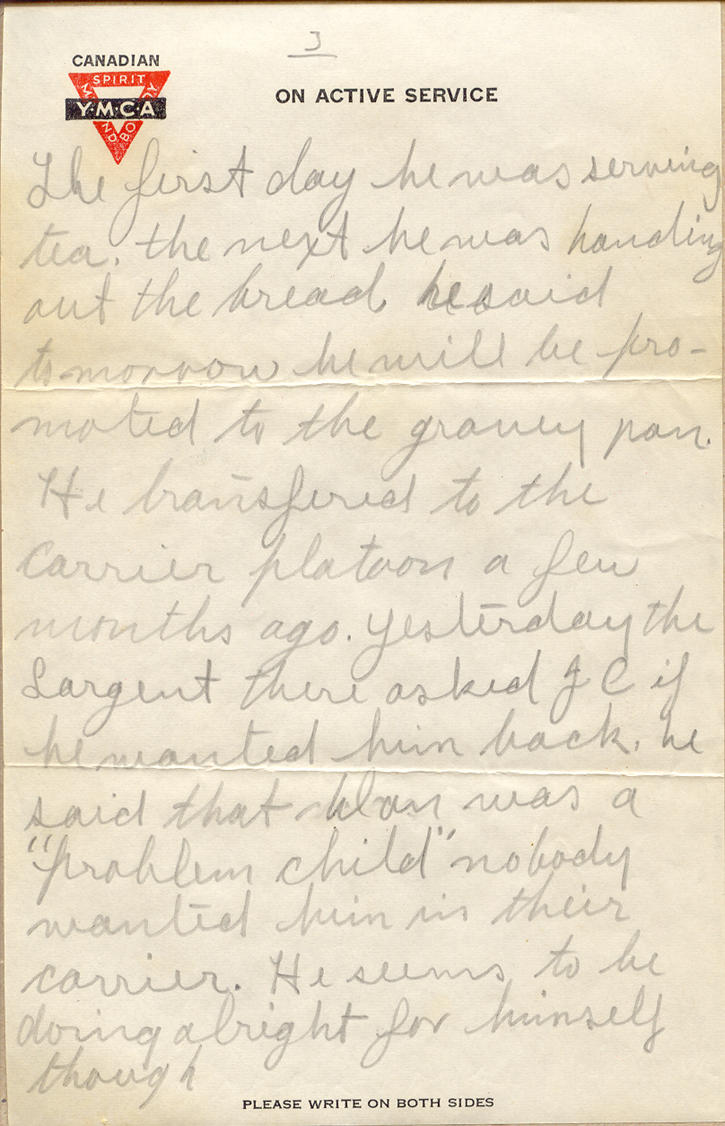 3
CANADIAN
SPIRIT
Y·M·C·A
MIND
BODY
ON ACTIVE SERVICE
The first day he was serving
tea, the next he was handing
out the bread, he said
tomorrow he will be pro-
moted to the gravey pan.
He transfered to the
Carrier platoon a few
months ago. yesterday the
Sargent there asked J C if
he wanted him back, he
said that was a
"problem child" nobody
wanted him in their
carrier. He seems to be
doing alright for himself
though
PLEASE WRITE ON BOTH SIDES